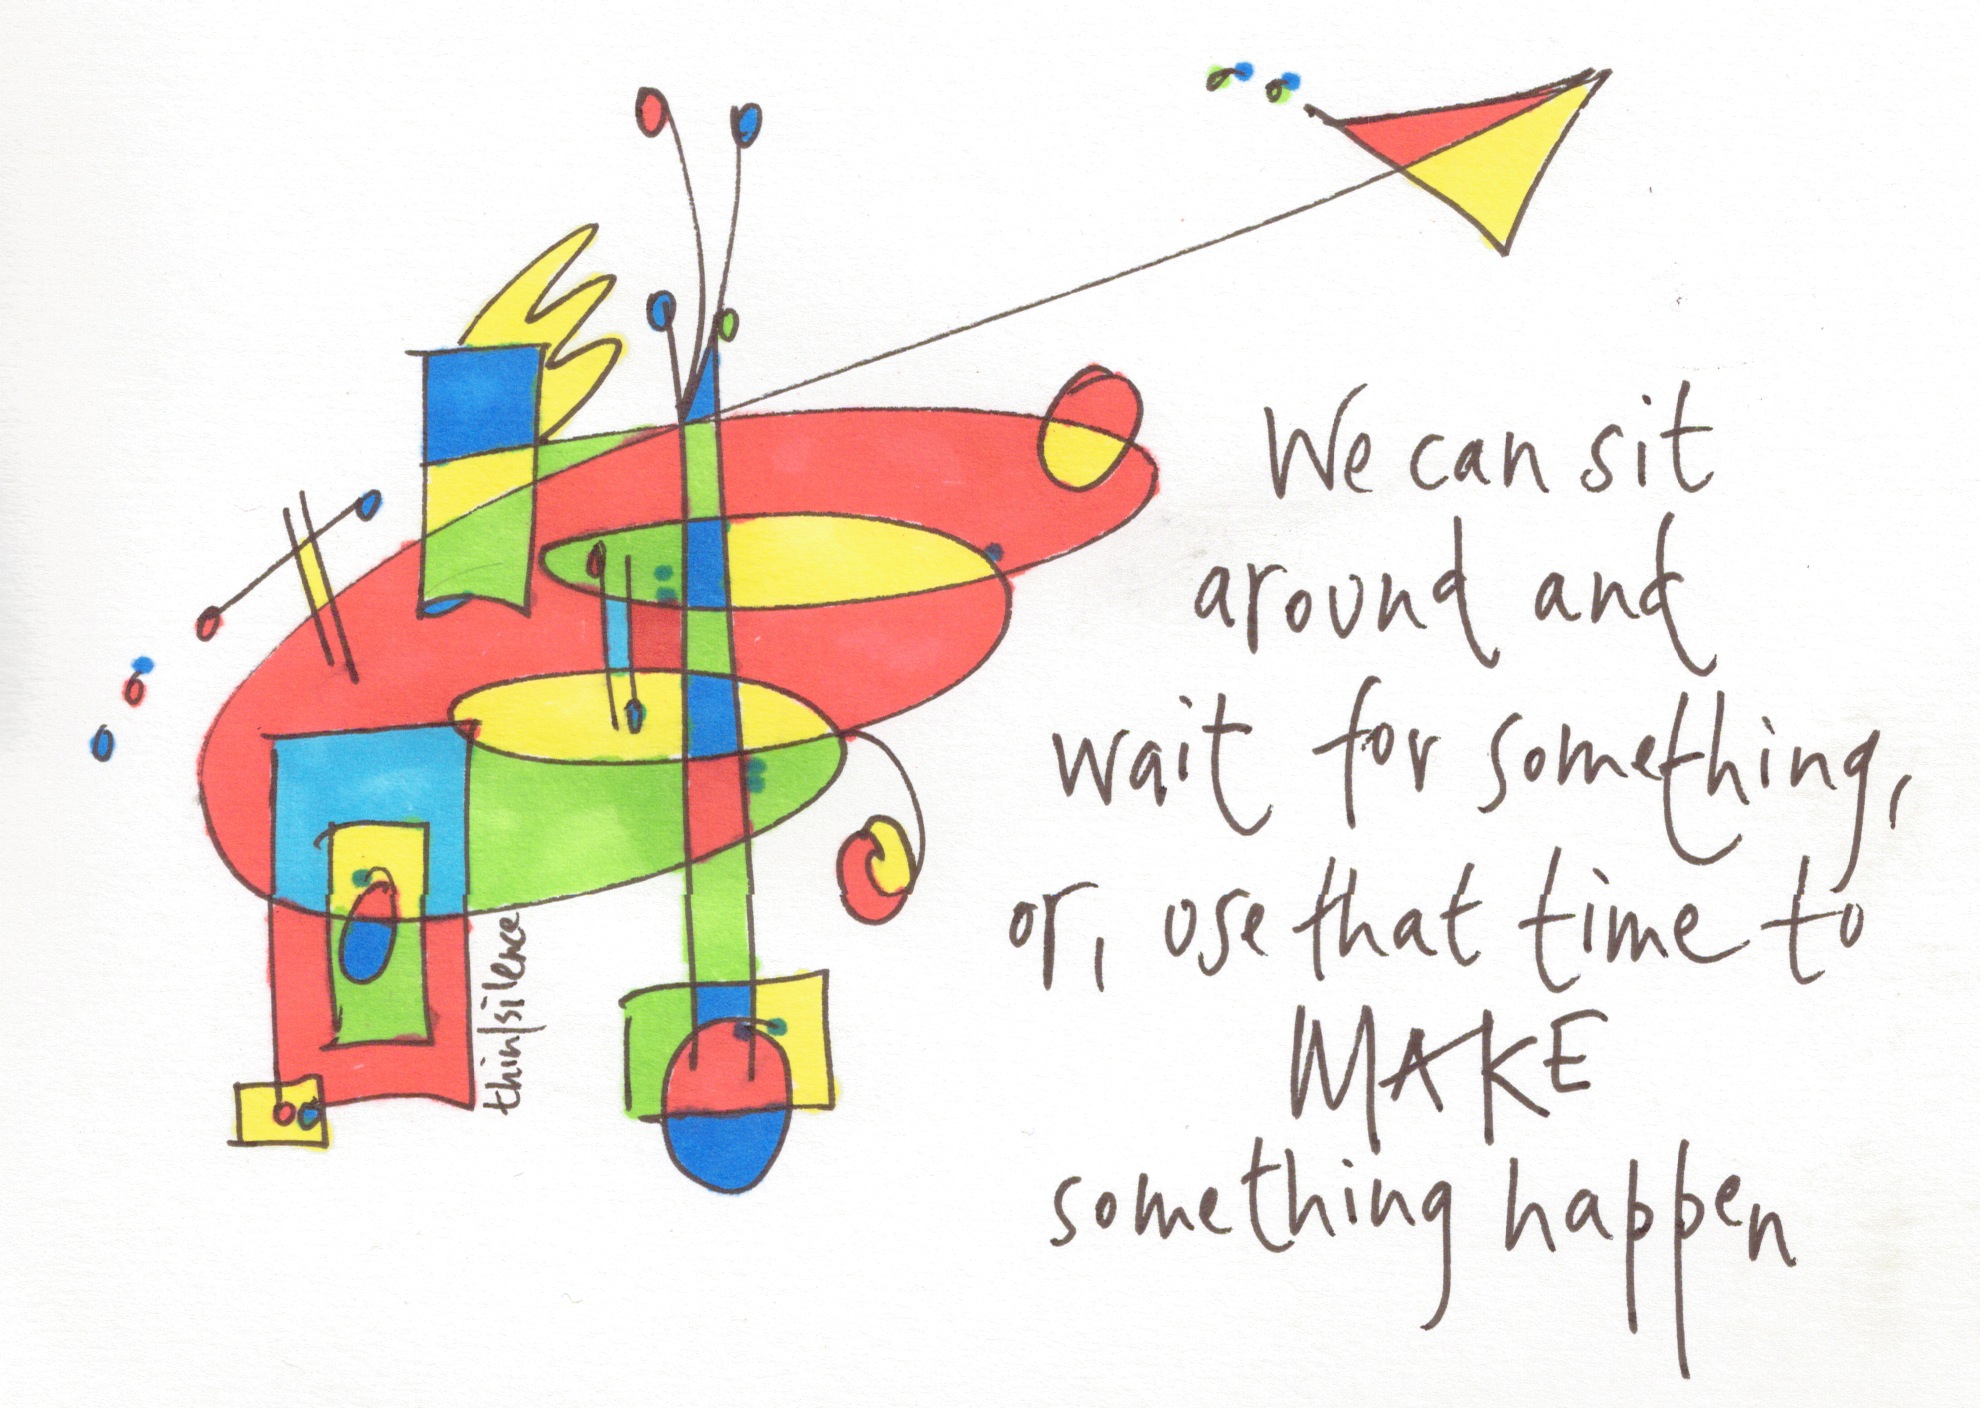 We can sit
around and
wait for something,
or, use that time to
MAKE
something happen
think/silence